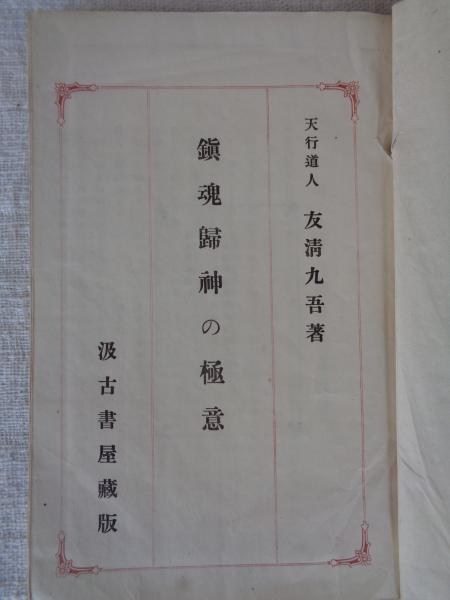 天行道人 友淸九吾著
鎭魂歸神の極意
汲古書屋藏版